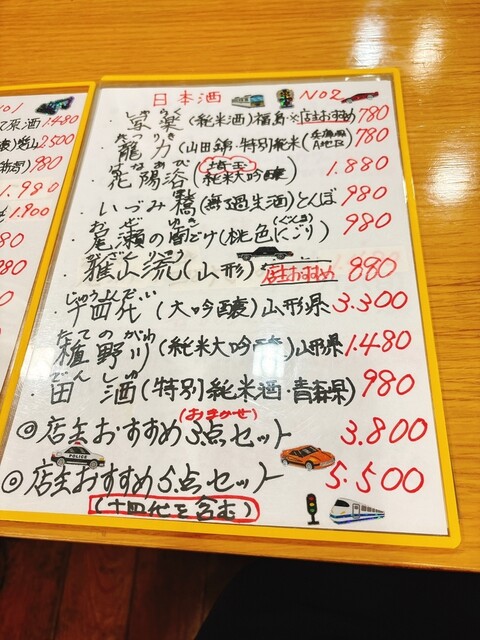 No1
原酒 1480
2.500
780
1.980
1.900
980
日本酒 No2
しゃらく
・寫楽(純米酒)福島※店主おすすめ 780
たつりき
・龍力(山田錦・特別純米(兵庫県A地区) 780
はなあび
・花陽浴(埼玉 純米大吟醸) 1.880
・いづみ橋(無過生酒)とんぼ 980
おぜ ゆき (にごり)
・尾瀬の雪どけ(桃色にごり) 980
・雅山流(山形) 店主おすすめ 880
じゅうよんだい
・十四代(大吟醸)山形県 3.300
たてのがわ
・楯野川(純米大吟醸)山形県 1.480
でんしゅ
・田酒(特別)純米酒・青森県) 980
(おまかせ)
◎店主おすすめ3点セット 3.800
◎店主おすすめ5点セット 5.500
(十四代を含む)
POLICE